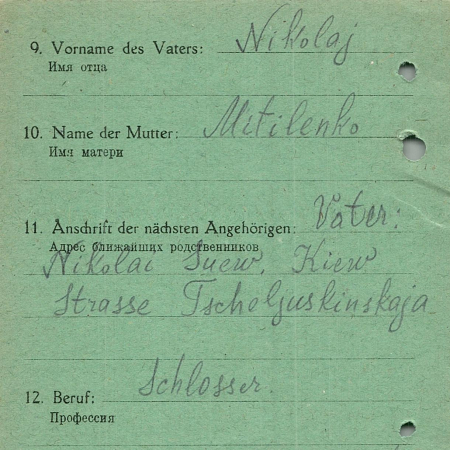 9. Vorname des Vaters: Nikolaj
Имя отца
10. Name der Mutter: Mitilenko
Имя матери
11. Anschrift der nächsten Angehörigen: Vater:
Адрес ближайших родственников
Nikolai Suew, Kiew
Strasse Tscheljuskinskaja
12. Beruf: Schlosser.
Профессия